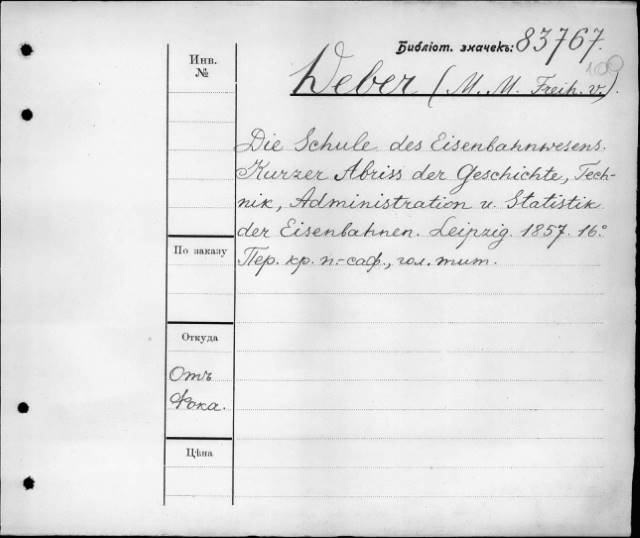 Библіот. значекъ: 83767.
109
Инв.
№
Weber (M. M. Freih. v.).
Die Schule des Eisenbahnwesens.
Kurzer Abriss der Geschichte, Tech-
nik, Administration u. Statistik
der Eisenbahnen. Leipzig. 1857. 16°
Пер. кр. п.-саф., гол. тит.
По заказу
Откуда
Отъ
Фока.
Цѣна